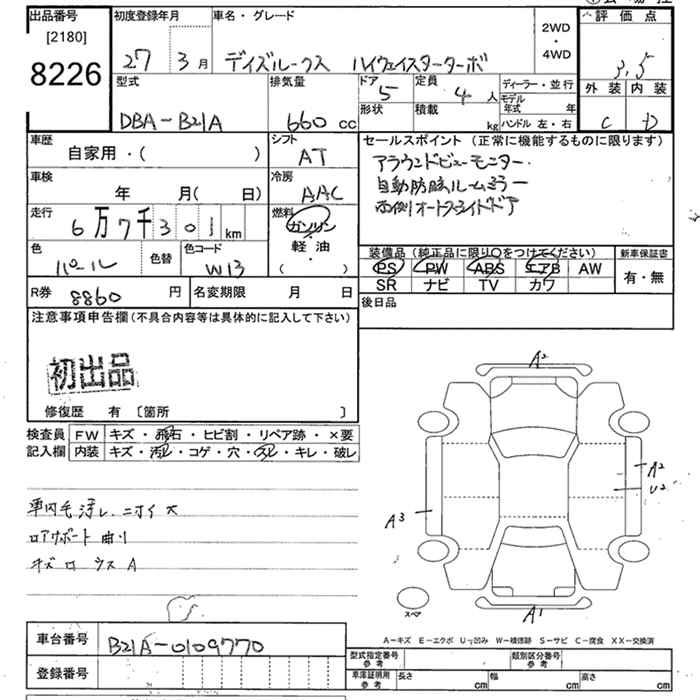 出品番号
[2180]
8226
初度登録年月
27 3月
車名・グレード
デイズルークス ハイウェイスターターボ
2WD
・
4WD
評価点
3.5
外装 内装
C D
型式
DBA-B21A
排気量
660 cc
ドア
5
形状
定員
4人
積載
kg
ディーラー・並行
モデル年式 年
ハンドル 左・右
車歴
自家用・( )
シフト
AT
セールスポイント(正常に機能するものに限ります)
アラウンドビューモニター
自動防眩ルームミラー
両側オートスライドドア
車検
年 月( 日)
冷房
AAC
走行
6万7千301km
燃料
ガソリン
軽油
( )
色
パール
色替
色コード
W13
装備品(純正品に限り〇をつけてください)
PS PW ABS エアB AW
SR ナビ TV カワ
新車保証書
有・無
R券
8860円
名変期限 月 日
後日品
注意事項申告欄(不具合内容等は具体的に記入して下さい)
初出品
修復歴 有〔箇所 〕
検査員記入欄
FW キズ・飛石・ヒビ割・リペア跡・×要
内装 キズ・汚れ・コゲ・穴・スレ・キレ・破レ
車内毛汚レニオイ大
ロアサポート曲り
キズロウスA
A2
A2
U2
A3
A1
スペア
A-キズ E-エクボ U-凹み W-補修跡 S-サビ C-腐食 XX-交換済
車台番号
B21A-0109770
登録番号
型式指定番号
参考
類別区分番号
参考
車庫証明用
参考
長さ cm
幅 cm
高さ cm